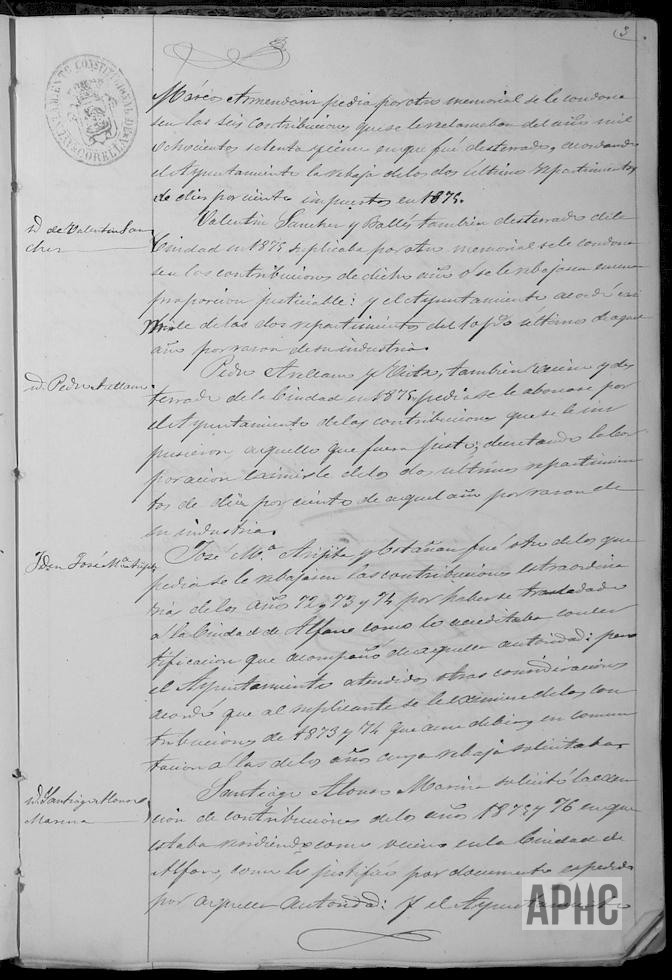 3
AYUNTAMIENTO CONSTITUCIONAL DE
CORELLA
Márcos Armendariz pedia por otro memorial se le condona
sen las seis contribuciones que se le reclamaban del año mil
ochocientos setenta y cinco en que fué desterrado, acordando
el Ayuntamiento la rebaja de los dos últimos repartimientos
de diez por ciento impuestos en 1875.
id de Valentin San
chez
Valentin Sanchez y Ballés, tambien desterrado de la
Ciudad en 1875 suplicaba por otro memorial se le condona
sen las contribuciones de dicho año ó se le rebajasen en una
proporcion justiciable: y el Ayuntamiento acordó exi
mirle de las dos repartimientos del 10 p% últimos de aquel
año por razon de su industria.
id. Pedro Arellano
Pedro Arellano y Veita, tambien vecino y des
terrado de la Ciudad en 1875, pedia se le abonase por
el Ayuntamiento de las contribuciones que se le im
pusieron, aquello que fuera justo; decretando la Cor
poracion eximirle de los dos últimos repartimien
tos de diez por ciento de aquel año por razon de
su industria.
Iden José Mª Arijita
José Mª Arijita y Catañan fué otro de los que
pedia se le rebajasen las contribuciones estraordina
rias de los años 72, 73 y 74 por haberse trasladado
á la Ciudad de Alfaro como lo acreditaba con cer
tificacion que acompañó de aquella autoridad: pero
el Ayuntamiento atendidas otras consideraciones
acordó que al suplicante se le eximiere de las con
tribuciones de 1873 y 74 que aun debia, en conmu
tacion a las de los años cuya rebaja solicitaba.
id. Santiago Alonso
Marina
Santiago Alonso Marina solicitó la exen
cion de contribuciones de los años 1873 y 76 en que
estaba residiendo como vecino en la Ciudad de
Alfaro, como lo justificó por documento espedido
por aquella autoridad: y el Ayuntamiento
APHC